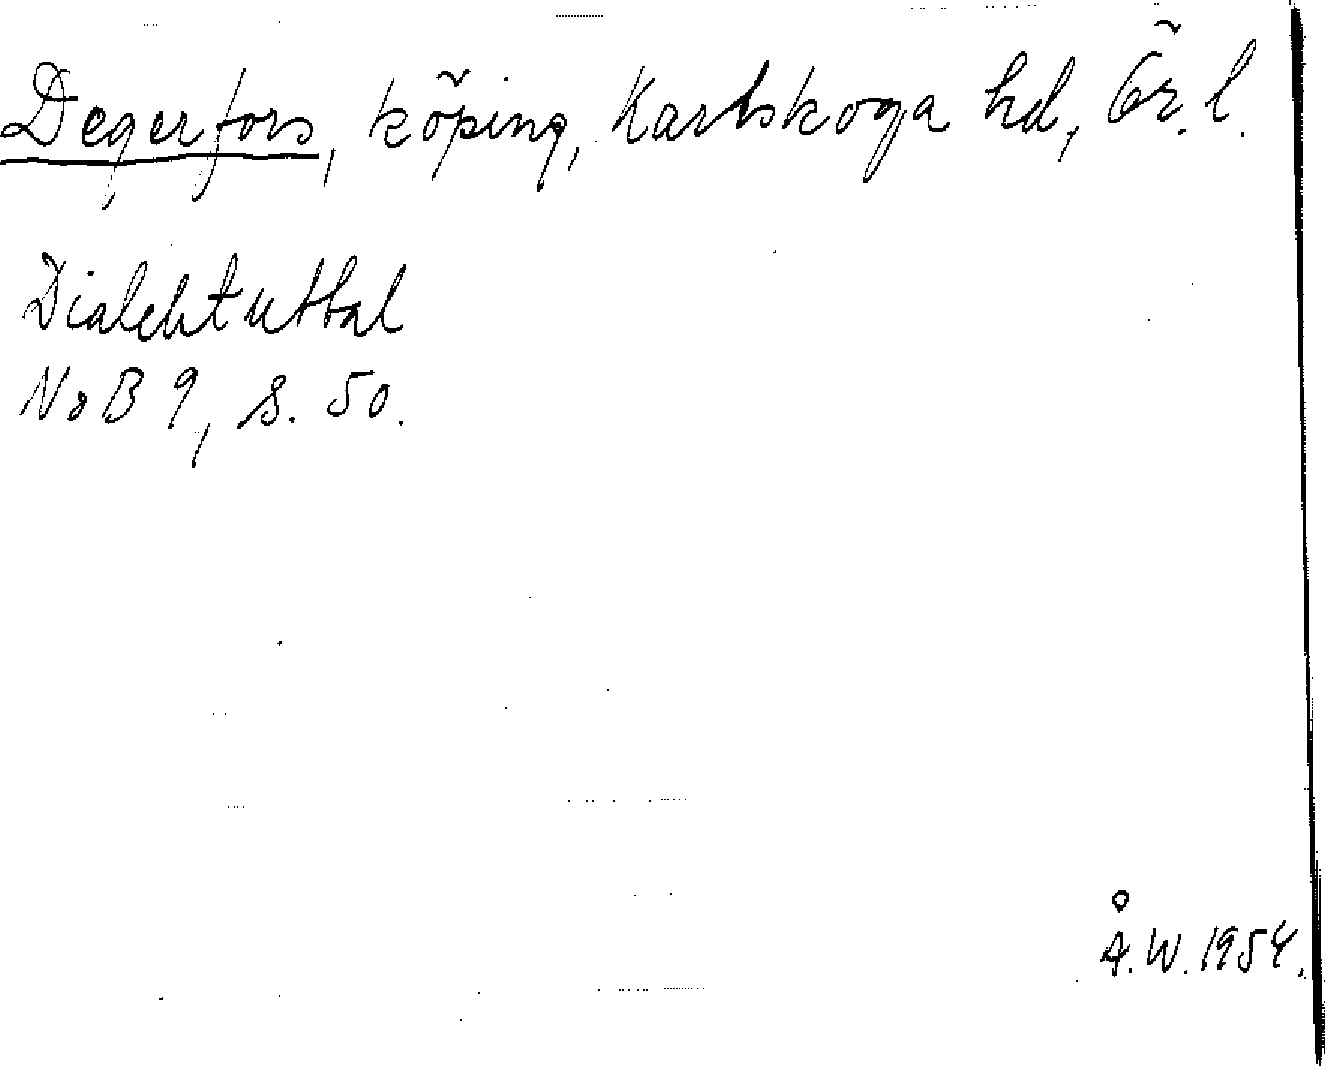 Degerfors, köping, Karlskoga hd, Ör. l.
Dialektuttal
NoB 9, s. 50.
Å. W. 1954.